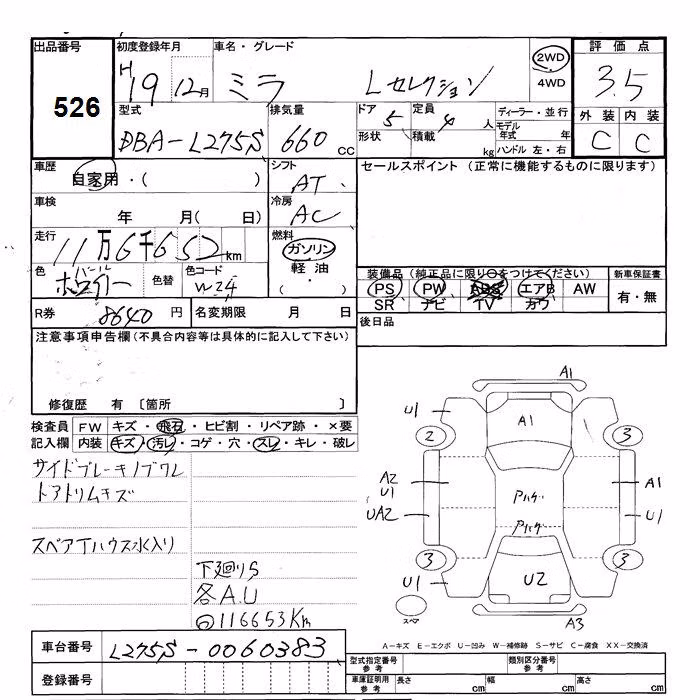 出品番号 初度登録年月 車名・グレード 評価点
526 H19 12月 ミラ Lセレクション 2WD 4WD 3.5
型式 排気量 ドア 5 定員 4 人 ディーラー・並行 外装 内装
DBA-L275S 660 CC 形状 積載 kg モデル年式 年 ハンドル 左・右 C C
車歴 自家用・( ) シフト AT セールスポイント (正常に機能するものに限ります)
車検 年 月( 日) 冷房 AC
走行 11万6千652km 燃料 ガソリン 軽油・( )
色 パールホワイト 色替 色コード W24
装備品(純正品に限り○をつけてください) 新車保証書
PS PW ABS エアB AW 有・無
SR ナビ TV カワ
R券 8640 円 名変期限 月 日 後日品
注意事項申告欄(不具合内容等は具体的に記入して下さい)
修復歴 有 〔箇所 〕
検査員 FW キズ・飛石・ヒビ割・リペア跡・×要
記入欄 内装 キズ・汚レ・コゲ・穴・スレ・キレ・破レ
サイドブレーキノブワレ
ドアトリムキズ
スペアTハウス水入り
下廻りS
各A.U
116653Km
A1
U1 A1
2 3
A2 U1 A1
Pハゲ
UA2 U1
Pハゲ
3 3
U1 U2
スペア A3
A-キズ E-エクボ U-凹み W-補修跡 S-サビ C-腐食 XX-交換済
車台番号 L275S-0060383
登録番号
型式指定番号 参考 類別区分番号 参考
車庫証明用 参考 長さ cm 幅 cm 高さ cm